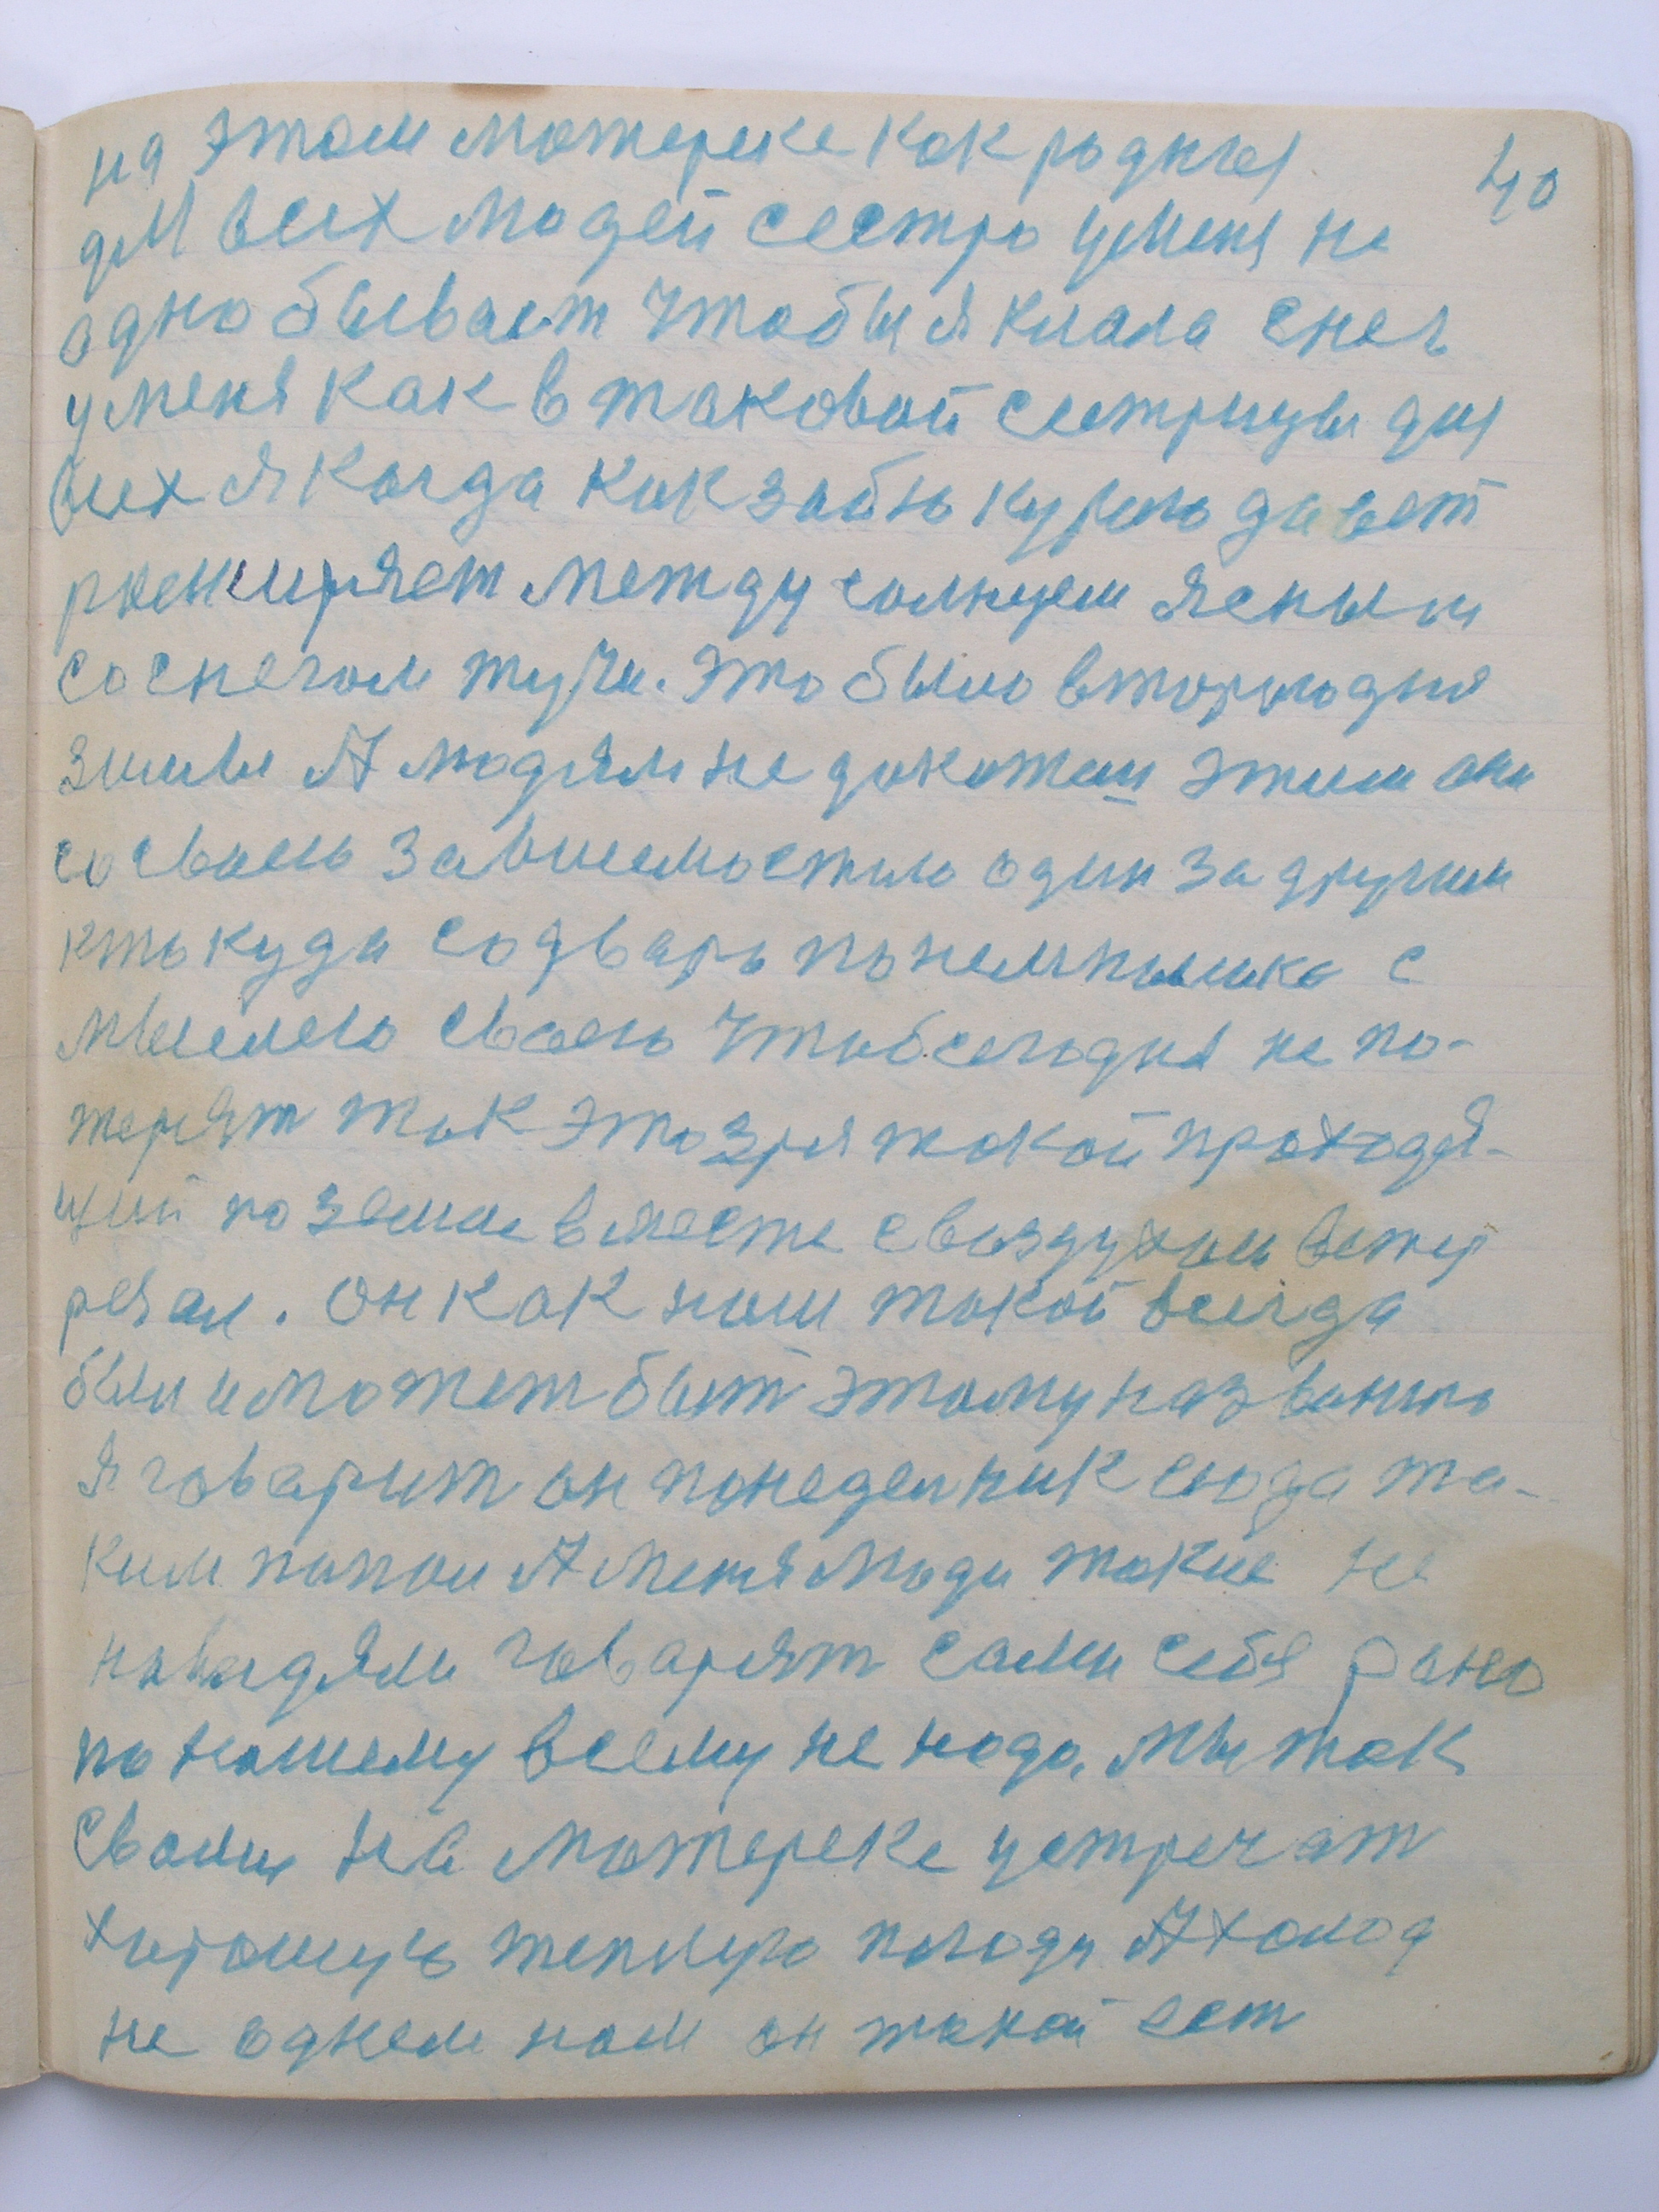 на этом мотереке как родныя 40
для всех людей сестра уменя не
одно бывает чтобы я клала снег
у меня как в таковой сестрицы для
всех я когда как
разширяет между солнцем ясным
со снегом тучи. Это было второго дня
зимы А людям не докотом этим они
со своею зависемостию один за другим
кто куда со двара понемножко с
мыслею своею чтоб сегодня не по-
терят так это зря такой проходя-
щий по земли вместе с воздухом ветер
резал. Он как наш такой всегда
был и может быт этому названию
я говарит он понеделник сюда та-
ким попал А меня люди такие не
навидяли говарят сами себя рано
по нашему всему не надо. Мы так
своим на мотереке устречат
хорошую теплую погоду А холод
не однем нам он такой ест